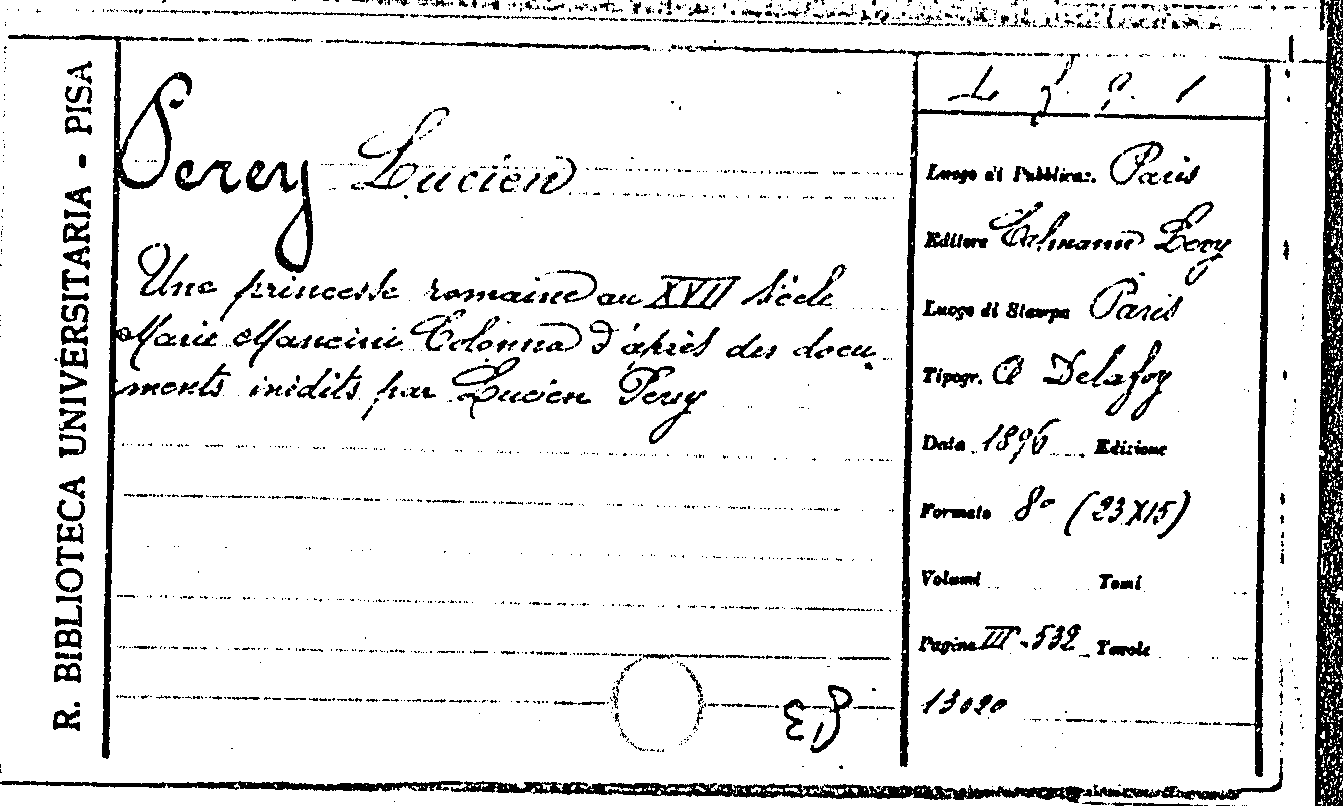 R. BIBLIOTECA UNIVERSITARIA - PISA
Perey Lucien
Une princesse romaine au XVII siècle
Marie Mancini Colonna d'après des docu-
ments inédits par Lucien Perey
Luogo di Pubblicaz. Paris
Editore Calmann Levy
Luogo di Stampa Paris
Tipogr. A Delafoy
Data 1896 Edizione
Formato 8° (23X15)
Volumi Tomi
Pagine III-532 Tavole
13020